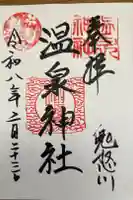 奉拝
温泉神社
令和八年二月二十三日
鬼怒川